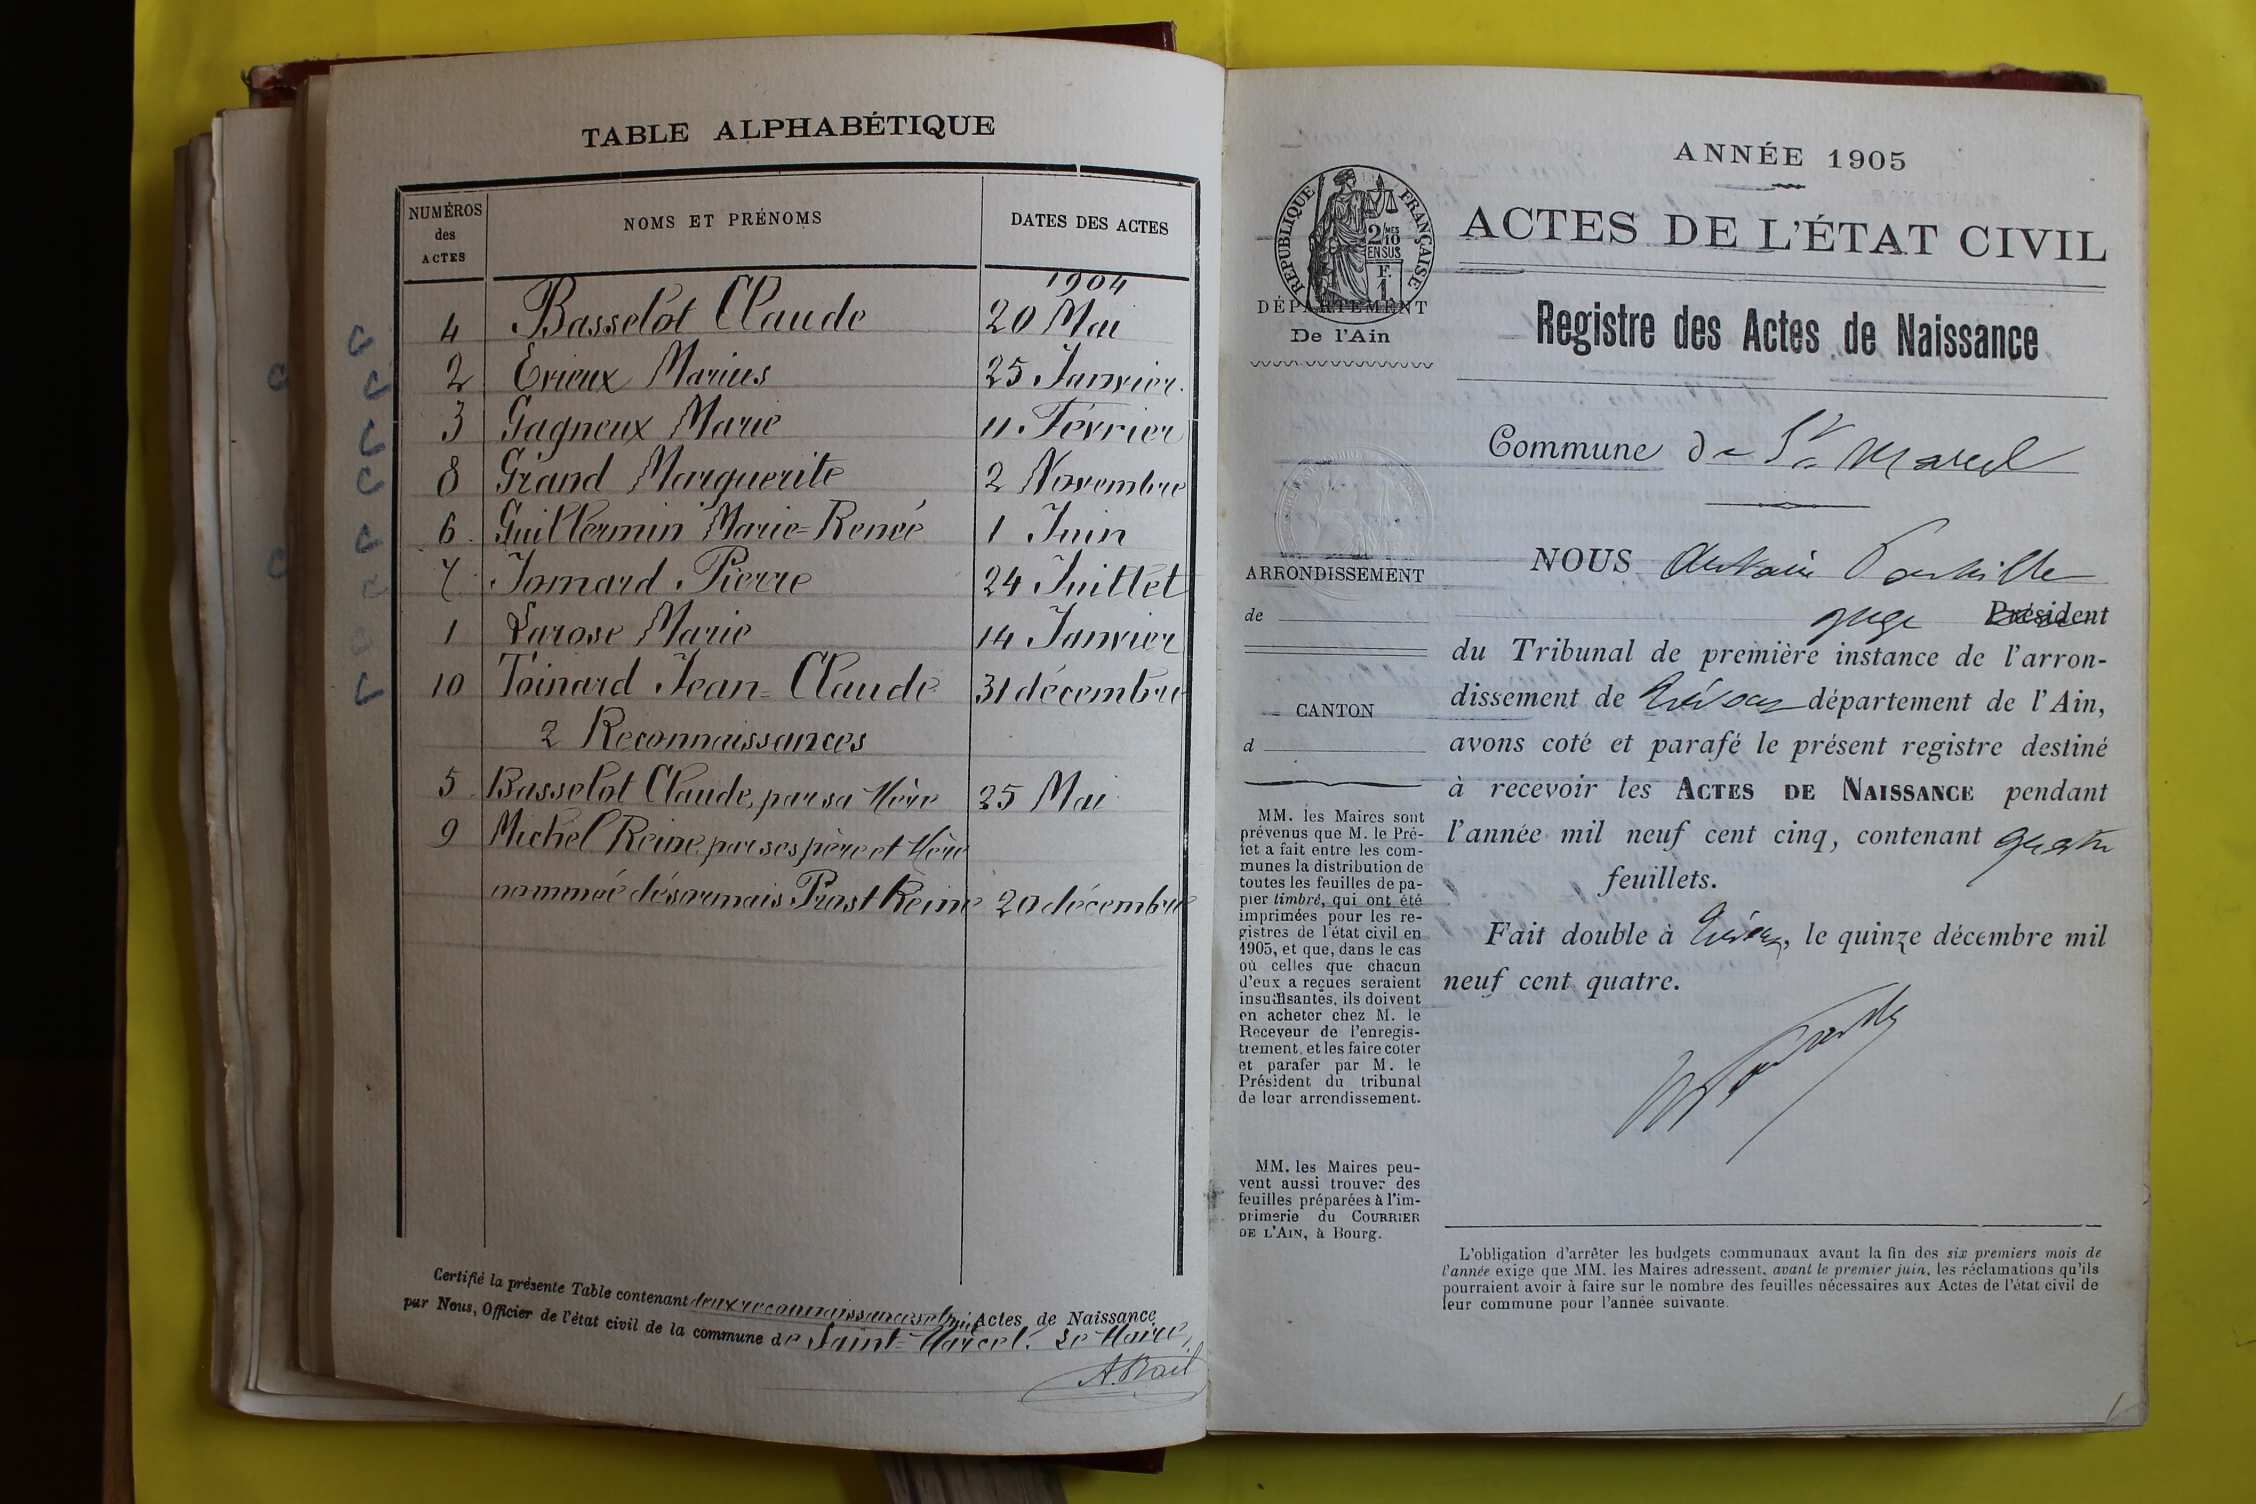 TABLE ALPHABÉTIQUE
NUMÉROS des ACTES
NOMS ET PRÉNOMS
DATES DES ACTES
1904
4 Basselot Claude 20 Mai
2 Erieux Marius 25 Janvier
3 Gagneux Marie 11 Février
8 Grand Marguerite 2 Novembre
6 Guillermin Marie=Renée 1 Juin
7 Jomard Pierre 24 Juillet
1 Larose Marie 14 Janvier
10 Toinard Jean=Claude 31 décembre
2 Reconnaissances
5 Basselot Claude, par sa Mère 25 Mai
9 Michel Reine, par ses père et Mère
nommée désormais Prost Reine 20 décembre
Certifié la présente Table contenant deux reconnaissances et huit Actes de Naissance
par Nous, Officier de l'état civil de la commune de Saint=Marcel. Le Maire,
ANNÉE 1905
RÉPUBLIQUE FRANÇAISE
2/10 MES
EN SUS
F.
1
ACTES DE L'ÉTAT CIVIL
DÉPARTEMENT
De l'Ain
Registre des Actes de Naissance
Commune de St Marcel
ARRONDISSEMENT
de
CANTON
d
NOUS Antoine
juge Président
du Tribunal de première instance de l'arron-
dissement de Trévoux département de l'Ain,
avons coté et parafé le présent registre destiné
à recevoir les ACTES DE NAISSANCE pendant
l'année mil neuf cent cinq, contenant quatre
feuillets.
Fait double à Trévoux, le quinze décembre mil
neuf cent quatre.
MM. les Maires sont
prévenus que M. le Pré-
fet a fait entre les com-
munes la distribution de
toutes les feuilles de pa-
pier timbré, qui ont été
imprimées pour les re-
gistres de l'état civil en
1905, et que, dans le cas
où celles que chacun
d'eux a reçues seraient
insuffisantes, ils doivent
en acheter chez M. le
Receveur de l'enregis-
trement, et les faire coter
et parafer par M. le
Président du tribunal
de leur arrondissement.
MM. les Maires peu-
vent aussi trouver des
feuilles préparées à l'im-
primerie du COURRIER
DE L'AIN, à Bourg.
L'obligation d'arrêter les budgets communaux avant la fin des six premiers mois de
l'année exige que MM. les Maires adressent, avant le premier juin, les réclamations qu'ils
pourraient avoir à faire sur le nombre des feuilles nécessaires aux Actes de l'état civil de
leur commune pour l'année suivante.